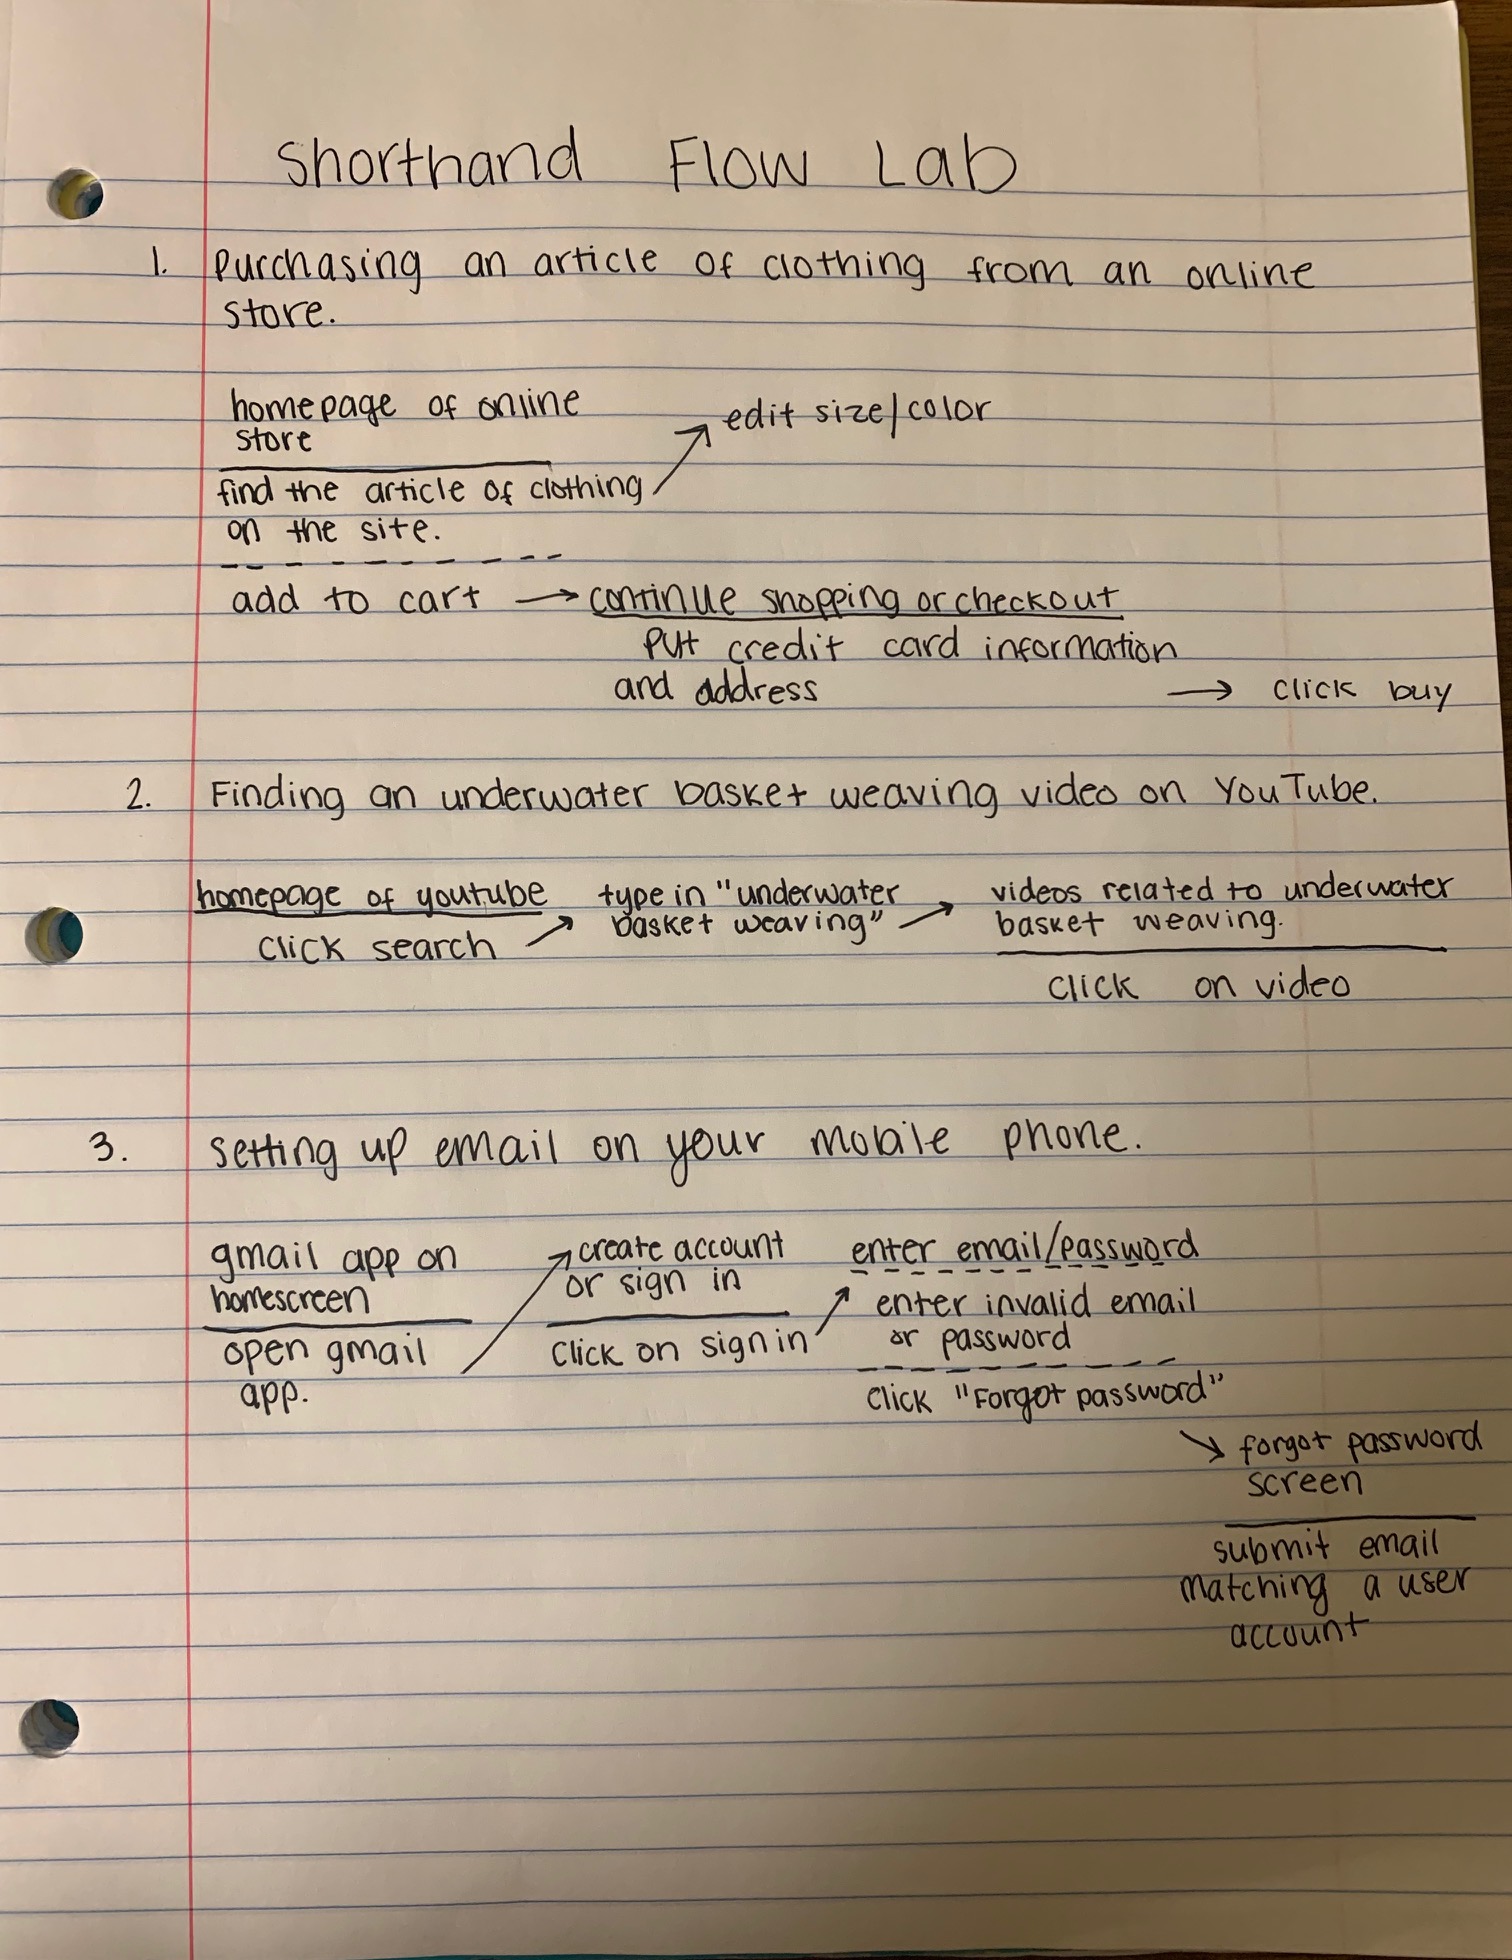 Shorthand Flow Lab
1. Purchasing an article of clothing from an online
store.
homepage of online
store
edit size/color
find the article of clothing
on the site.
add to cart → continue shopping or checkout
put credit card information
and address → click buy
2. Finding an underwater basket weaving video on YouTube.
homepage of youtube
click search
↗ type in "underwater
basket weaving"
↗ videos related to underwater
basket weaving.
click on video
3. setting up email on your mobile phone.
gmail app on
homescreen
open gmail
app.
↗ create account
or sign in
click on sign in
↗ enter email/password
enter invalid email
or password
click "Forgot password"
↘ forgot password
screen
submit email
matching a user
account